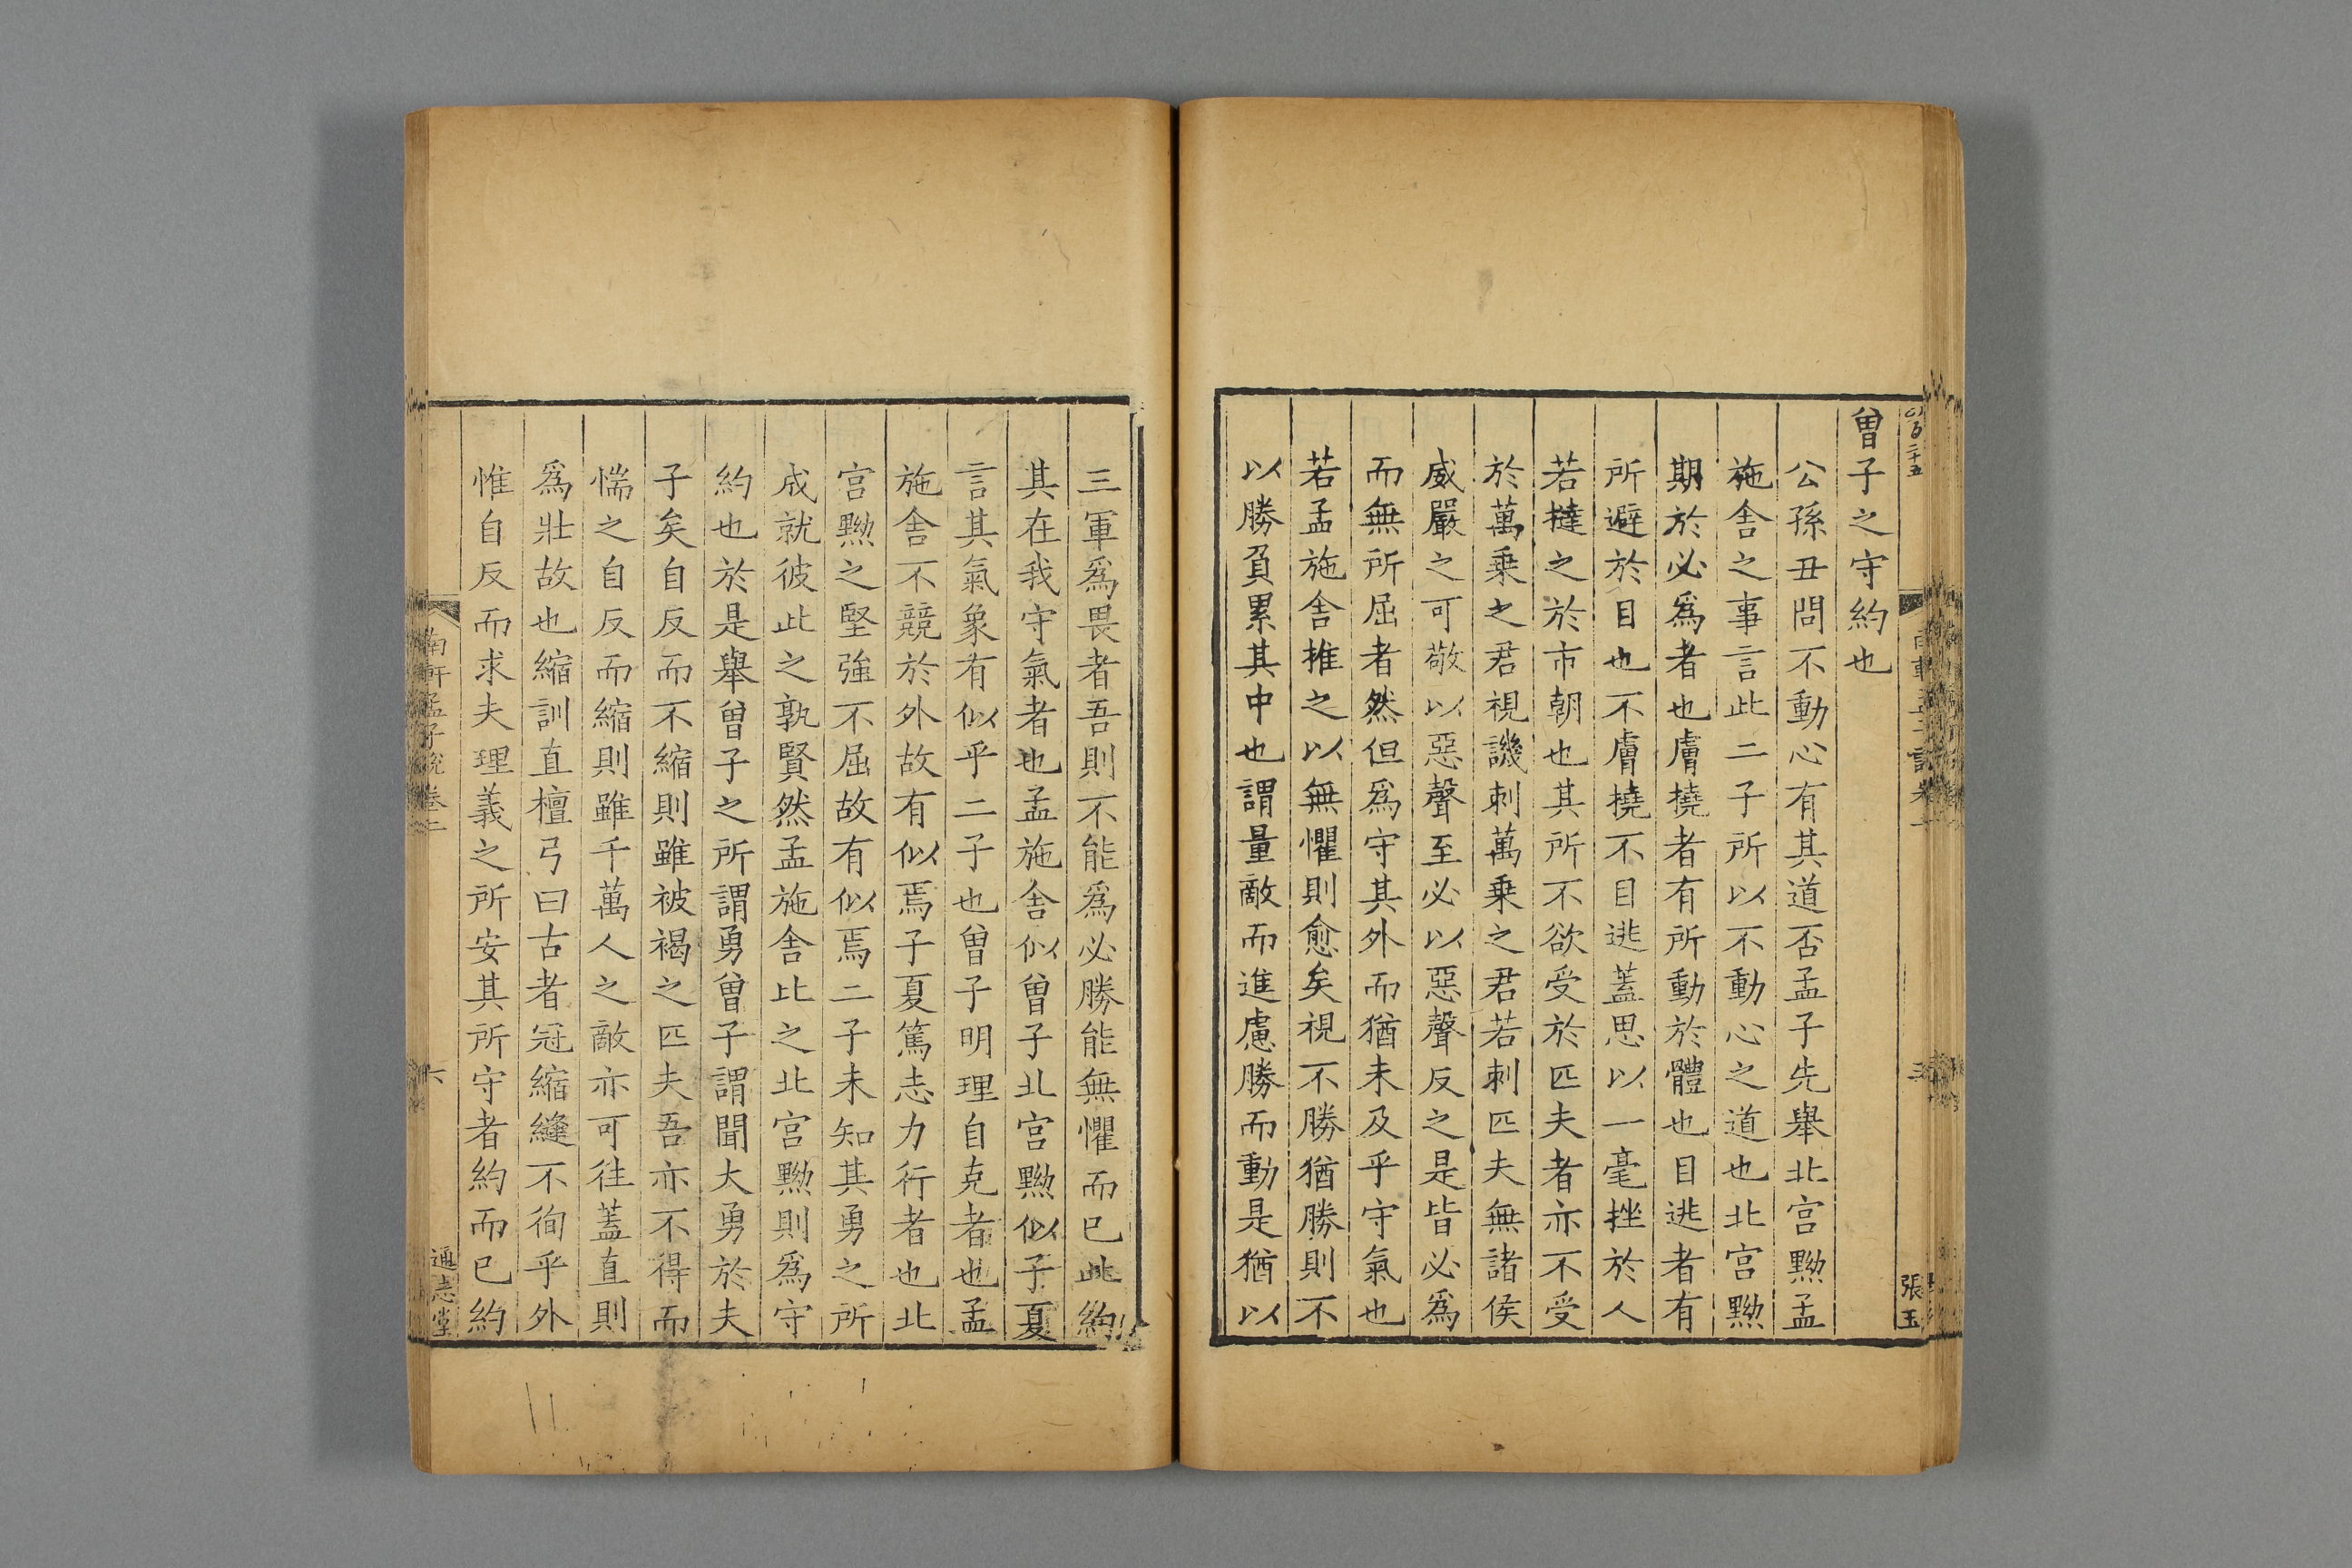 曽子之守約也
公孫丑問不動心有其道否孟子先舉北宮黝孟
施舍之事言此二子所以不動心之道也北宮黝
期於必爲者也膚撓者有所動於體也目逃者有
所避於目也不膚撓不目逃蓋思以一毫挫於人
若撻之於市朝也其所不欲受於匹夫者亦不受
於萬乗之君視譏刺萬乗之君若刺匹夫無諸侯
威嚴之可敬以惡聲至必以惡聲反之是皆必爲
而無所屈者然但爲守其外而猶未及乎守氣也
若孟施舍推之以無懼則愈矣視不勝猶勝則不
以勝負累其中也謂量敵而進慮勝而動是猶以
張玉
三軍爲畏者吾則不能爲必勝能無懼而已此約
其在我守氣者也孟施舍似曽子北宮黝似子夏
言其氣象有似乎二子也曽子明理自克者也孟
施舍不競於外故有似焉子夏篤志力行者也北
宮黝之堅強不屈故有似焉二子未知其勇之所
成就彼此之孰賢然孟施舍比之北宮黝則爲守
約也於是舉曽子之所謂勇曽子謂聞大勇於夫
子矣自反而不縮則雖被褐之匹夫吾亦不得而
惴之自反而縮則雖千萬人之敵亦可往蓋直則
爲壯故也縮訓直檀弓曰古者冠縮縫不徇乎外
惟自反而求夫理義之所安其所守者約而已約
南軒孟子說卷二
六
通志堂